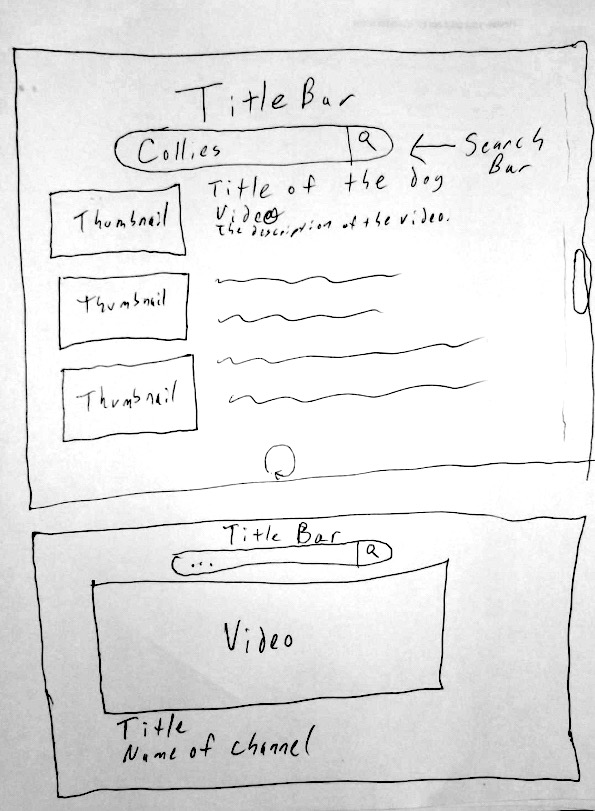 Title Bar
Collies
Search
Bar
Thumbnail
Title of the dog
Video
The description of the video.
Thumbnail
Thumbnail
Title Bar
...
Video
Title
Name of channel